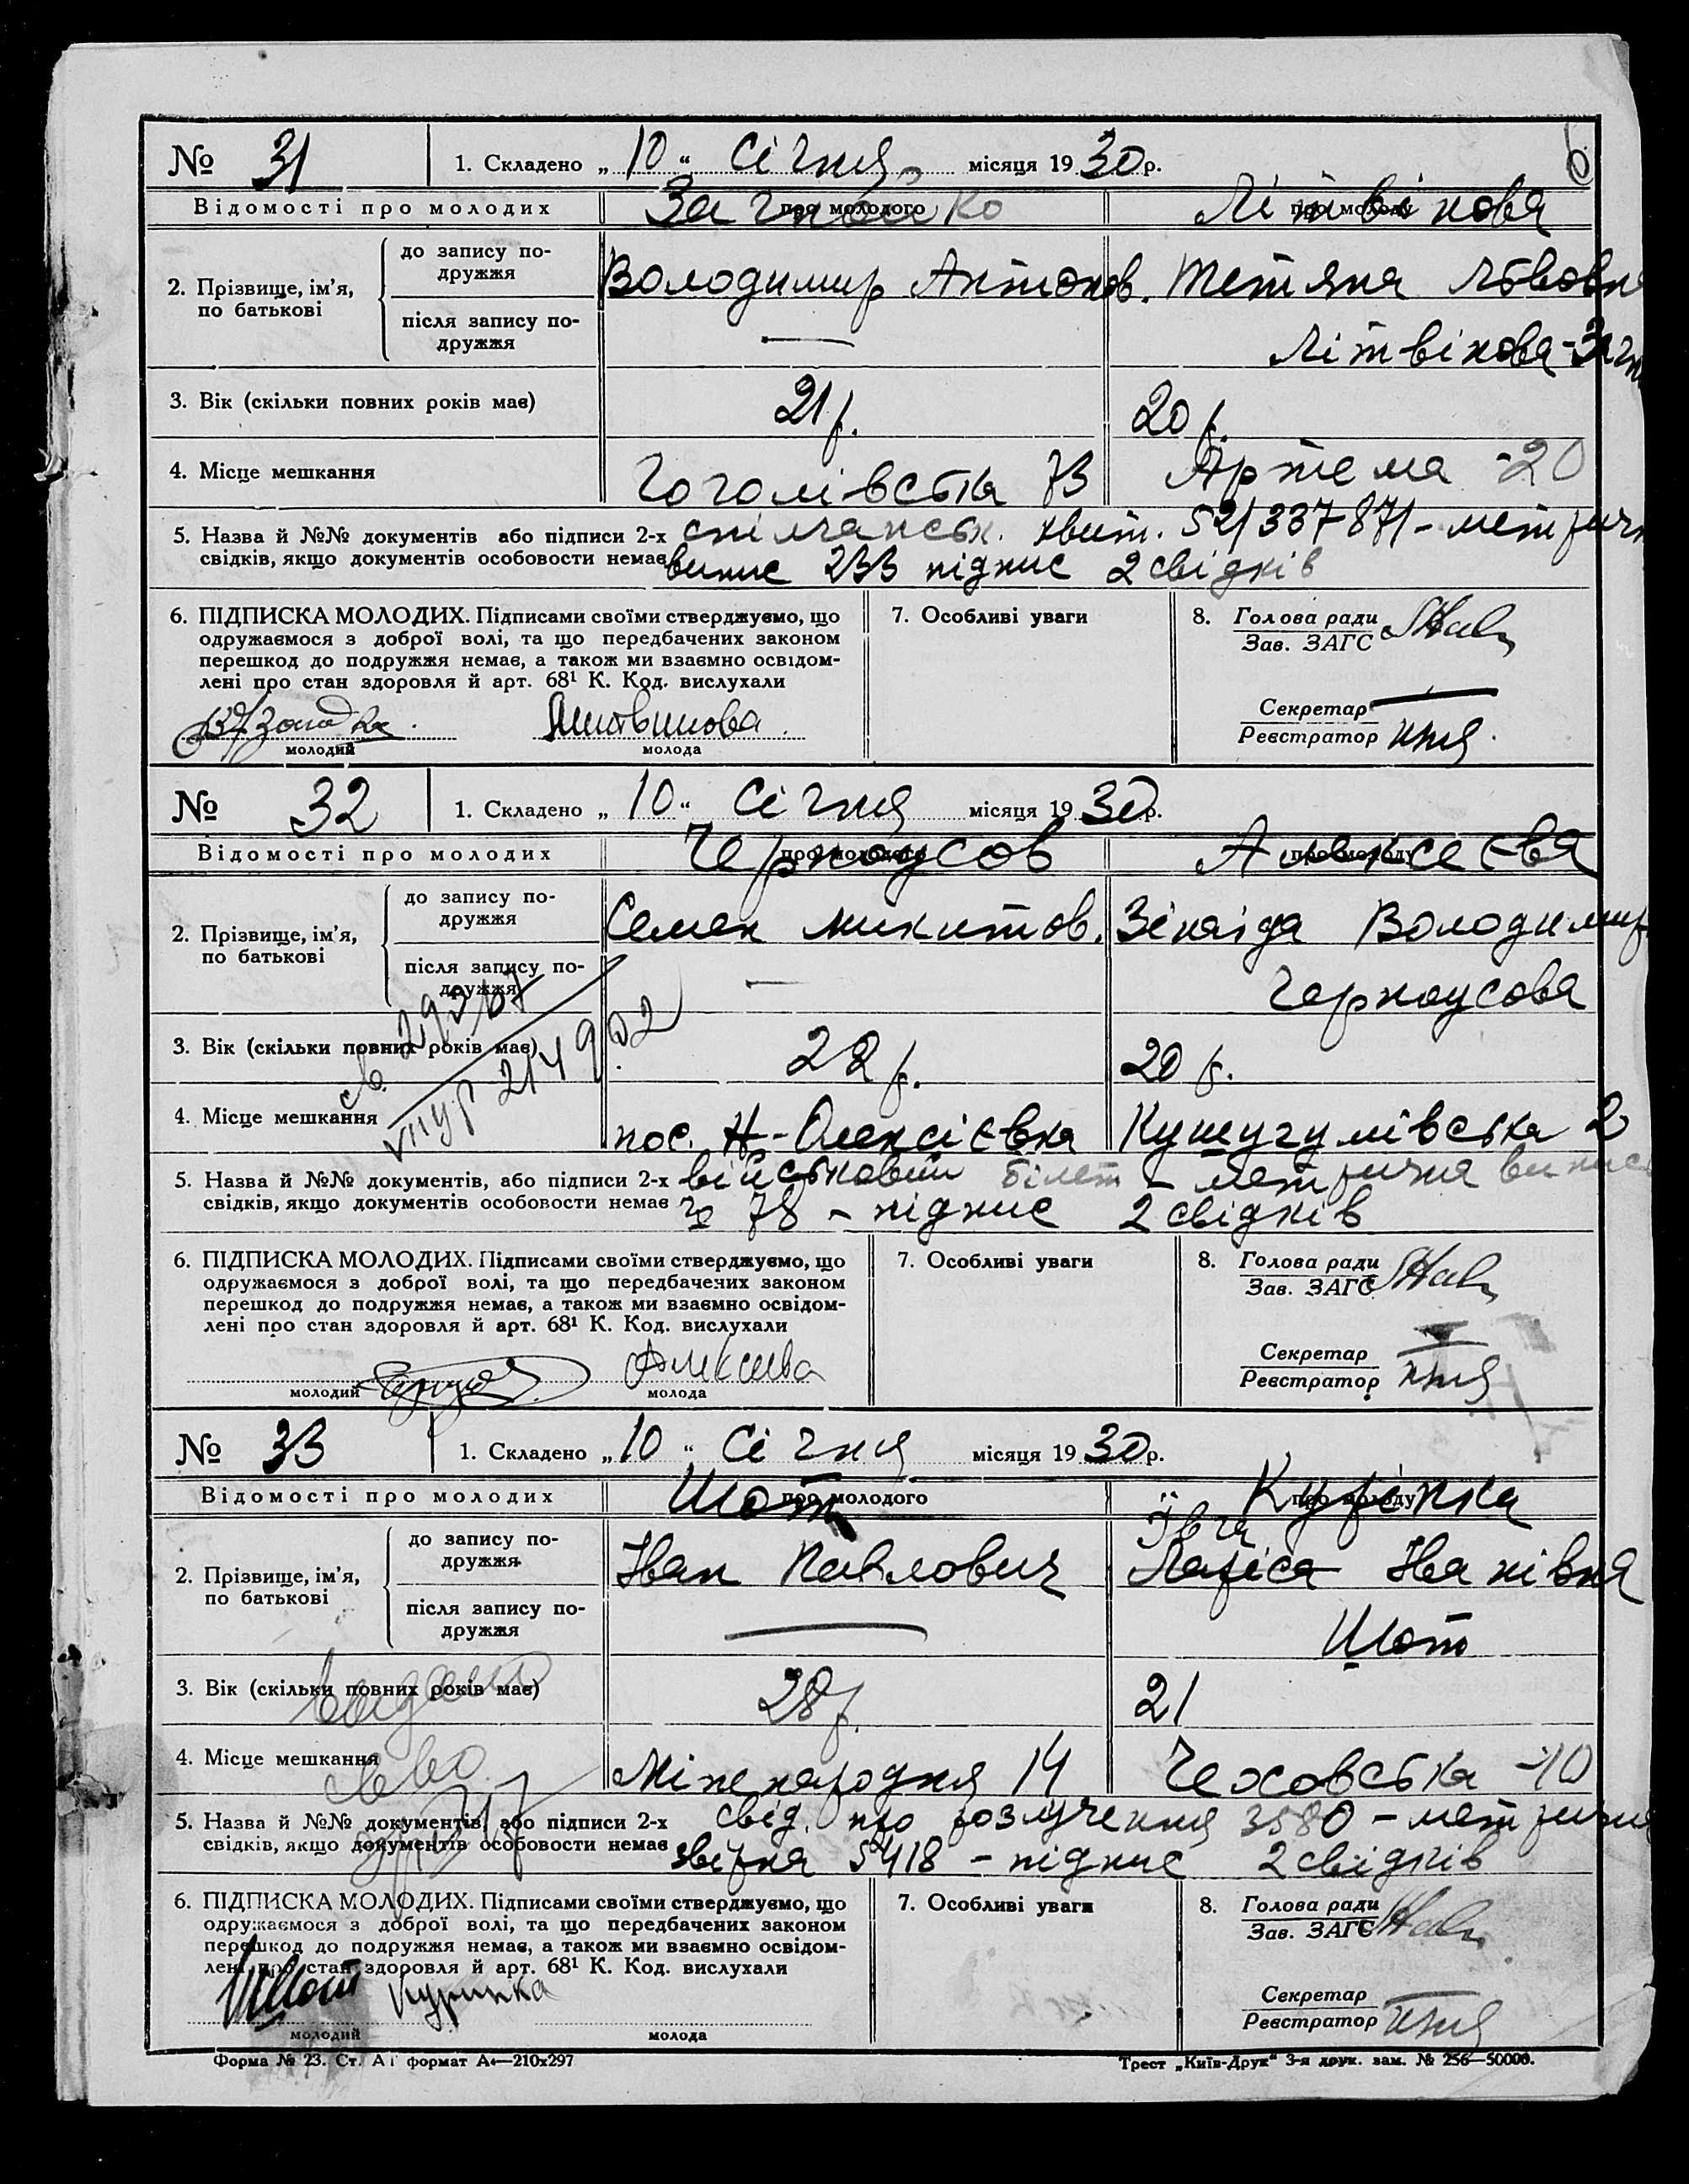 6
№ 31 1. Складено „10“ Січня місяця 1930 р.
Відомості про молодих про молодого про молоду
Літвінова
2. Прізвище, ім’я, по батькові
до запису подружжя
Володимир Антонов. Тетяна Львовна
після запису подружжя
— Літвінова-
3. Вік (скільки повних років має) 21 р. 20 р.
4. Місце мешкання Гоголівська 73 Артема -20
5. Назва й №№ документів або підписи 2-х спілчанськ. квит. 521337871 –
свідків, якщо документів особовости немає випис 233 підпис 2 свідків
6. ПІДПИСКА МОЛОДИХ. Підписами своїми стверджуємо, що
одружаємося з доброї волі, та що передбачених законом
перешкод до подружжя немає, а також ми взаємно освідом-
лені про стан здоровля й арт. 68¹ К. Код. вислухали
Литвинова
молодий молода
7. Особливі уваги
8. Голова ради
Зав. ЗАГС
Секретар
Реєстратор
№ 32 1. Складено „10“ Січня місяця 1930 р.
Відомості про молодих про молодого про молоду
Черноусов Алексеєва
2. Прізвище, ім’я, по батькові
до запису подружжя
Семен Микитов. Зінаїда Володимир
після запису подружжя
— Черноусова
3. Вік (скільки повних років має) 22 р. 20 р.
4. Місце мешкання пос. Н-Олексієвка Кушугумівська 2
5. Назва й №№ документів, або підписи 2-х військовий білет – метрична випись
свідків, якщо документів особовости немає 78 – підпис 2 свідків
6. ПІДПИСКА МОЛОДИХ. Підписами своїми стверджуємо, що
одружаємося з доброї волі, та що передбачених законом
перешкод до подружжя немає, а також ми взаємно освідом-
лені про стан здоровля й арт. 68¹ К. Код. вислухали
Алексеева
молодий молода
7. Особливі уваги
8. Голова ради
Зав. ЗАГС
Секретар
Реєстратор
№ 33 1. Складено „10“ Січня місяця 1930 р.
Відомості про молодих про молодого про молоду
Шот Курінка
2. Прізвище, ім’я, по батькові
до запису подружжя
Івга
Іван Павлович Лариса Іванівна
після запису подружжя
— Шот
3. Вік (скільки повних років має) 28 р. 21
4. Місце мешкання Міжнародня 14 Чеховська -10
5. Назва й №№ документів, або підписи 2-х свід. про розлучення 3580 – метрична
свідків, якщо документів особовости немає 5418 – підпис 2 свідків
6. ПІДПИСКА МОЛОДИХ. Підписами своїми стверджуємо, що
одружаємося з доброї волі, та що передбачених законом
перешкод до подружжя немає, а також ми взаємно освідом-
лені про стан здоровля й арт. 68¹ К. Код. вислухали
Шот Куринка
молодий молода
7. Особливі уваги
8. Голова ради
Зав. ЗАГС
Секретар
Реєстратор
Форма № 23. Ст. А1 формат А4—210х297
Трест „Київ-Друк“ 3-я друк. зам. № 256—50000.